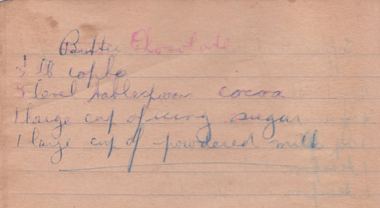 Butter Chocolate
½ lb copha
3 level tablespoons cocoa
1 large cup of icing sugar
1 large cup of powdered milk